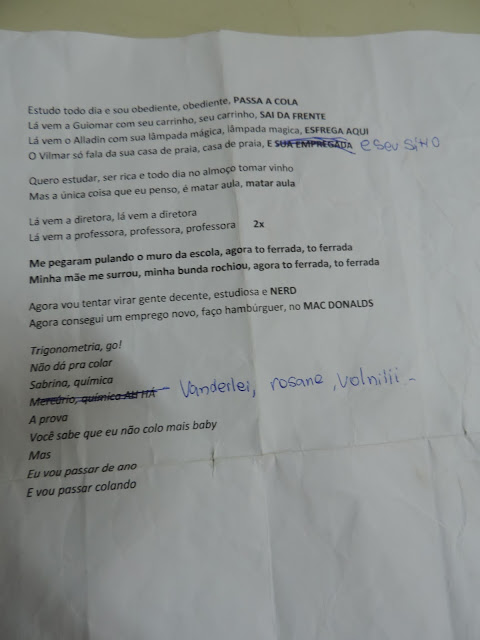 Estudo todo dia e sou obediente, obediente, PASSA A COLA
Lá vem a Guiomar com seu carrinho, seu carrinho, SAI DA FRENTE
Lá vem o Alladin com sua lâmpada mágica, lâmpada magica, ESFREGA AQUI
O Vilmar só fala da sua casa de praia, casa de praia, E SUA EMPREGADA e seu sítio
Quero estudar, ser rica e todo dia no almoço tomar vinho
Mas a única coisa que eu penso, é matar aula, matar aula
Lá vem a diretora, lá vem a diretora
Lá vem a professora, professora, professora 2x
Me pegaram pulando o muro da escola, agora to ferrada, to ferrada
Minha mãe me surrou, minha bunda rochiou, agora to ferrada, to ferrada
Agora vou tentar virar gente decente, estudiosa e NERD
Agora consegui um emprego novo, faço hambúrguer, no MAC DONALDS
Trigonometria, go!
Não dá pra colar
Sabrina, química
Mercúrio, química - Vanderlei, rosane, Volnilii -
A prova
Você sabe que eu não colo mais baby
Mas
Eu vou passar de ano
E vou passar colando